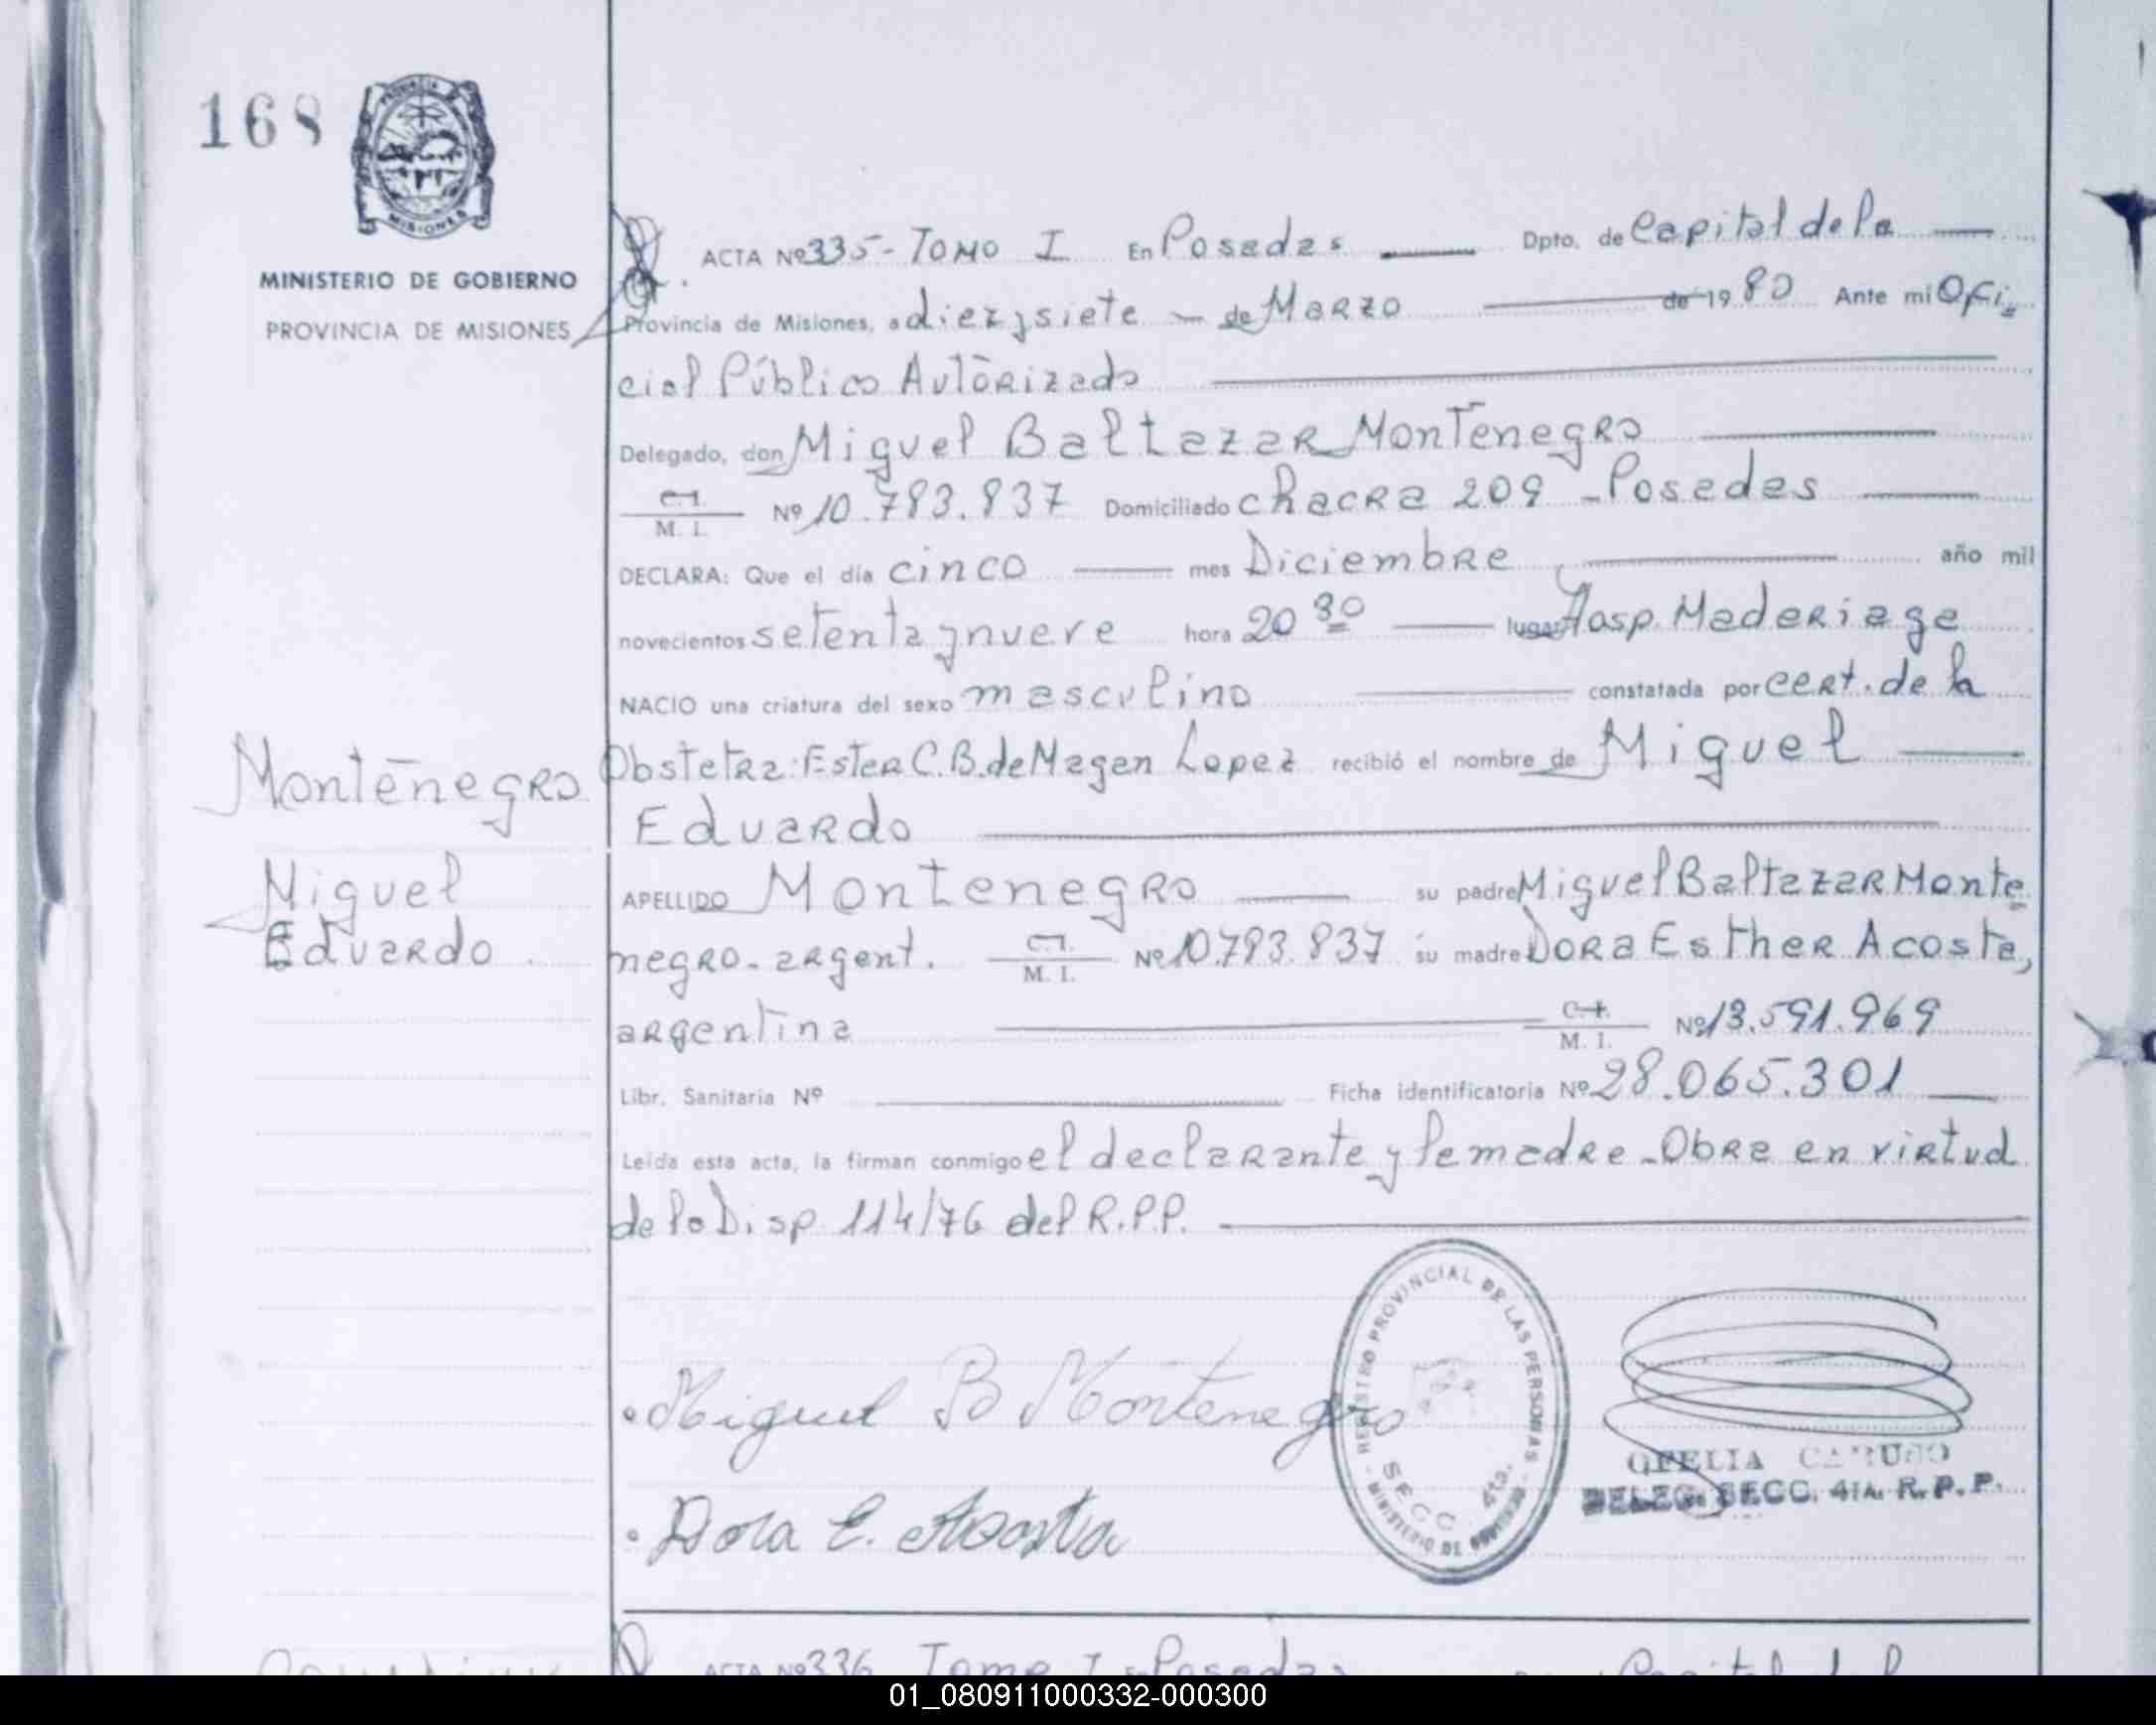 168
PROVINCIA DE
MISIONES
MINISTERIO DE GOBIERNO
PROVINCIA DE MISIONES
ACTA Nº 335 - TOMO I En Posadas Dpto. de Capital de la
Provincia de Misiones, a diez y siete de Marzo de 1980 Ante mi Ofi=
cial Público Autorizado
Delegado, don Miguel Baltazar Montenegro
C.I.
M. I. Nº 10.783.837 Domiciliado chacra 209 - Posadas
DECLARA: Que el día cinco mes Diciembre año mil
novecientos setenta y nueve hora 20 30 lugar Hosp. Madariaga
NACIO una criatura del sexo masculino constatada por cert. de la
Obstetra: Ester C.B. de Magan Lopez recibió el nombre de Miguel
Eduardo
Montenegro
Miguel
Eduardo
APELLIDO Montenegro su padre Miguel Baltazar Monte=
negro - argent. C.I. M. I. Nº 10.783.837 su madre Dora Esther Acosta,
argentina C.I. M. I. Nº 13.591.969
Libr. Sanitaria Nº Ficha identificatoria Nº 28.065.301
Leída esta acta, la firman conmigo el declarante y la madre - Obra en virtud
de la Disp 114/76 del R.P.P.
Miguel B Montenegro
Dora E. Acosta
REGISTRO PROVINCIAL DE LAS PERSONAS
SECC. 4ta.
MINISTERIO DE GOBIERNO
OFELIA
DELEG. SECC. 4TA. R.P.P.
ACTA Nº 336 Tomo I En Posadas Capital
01_080911000332-000300